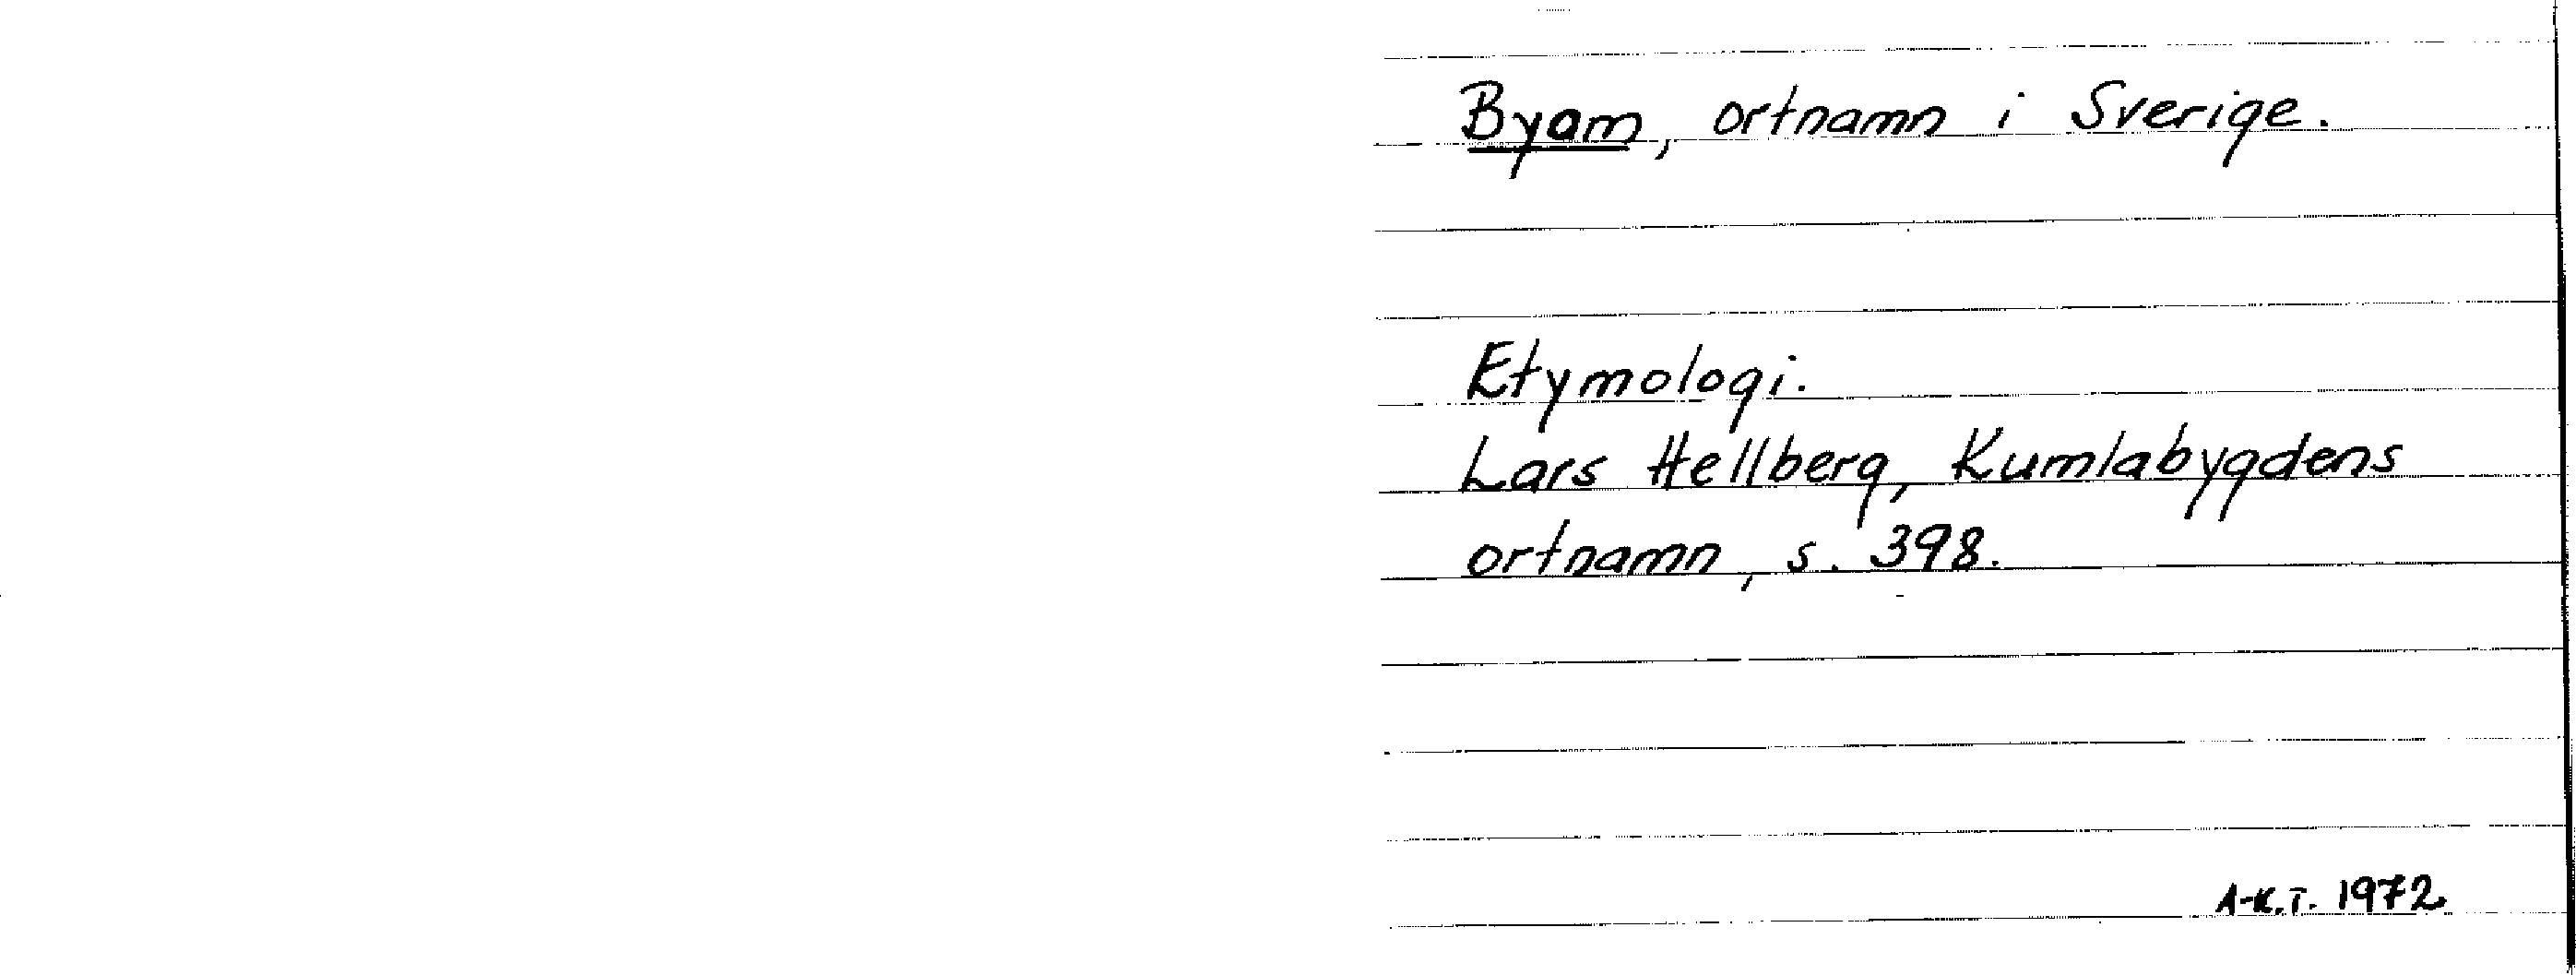 Byam, ortnamn i Sverige.
Etymologi.
Lars Hellberg, Kumlabygdens
ortnamn, s. 398.
A-K.T. 1972.